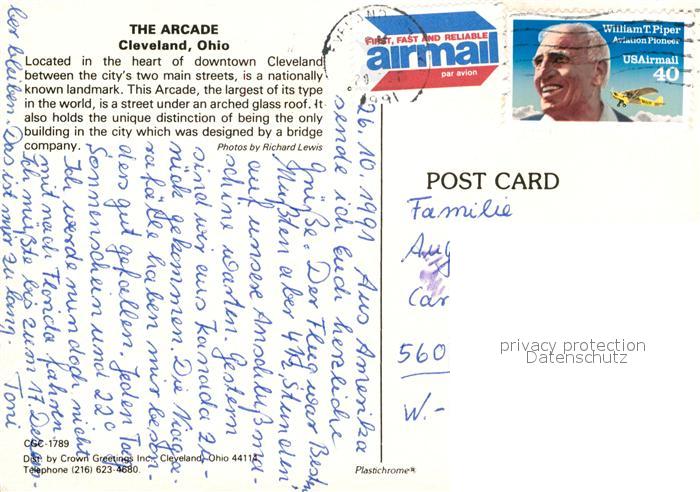 THE ARCADE
Cleveland, Ohio
Located in the heart of downtown Cleveland
between the city's two main streets, is a nationally
known landmark. This Arcade, the largest of its type
in the world, is a street under an arched glass roof. It
also holds the unique distinction of being the only
building in the city which was designed by a bridge
company.
Photos by Richard Lewis
FIRST, FAST AND RELIABLE
airmail
par avion
1991
William T. Piper
Aviation Pioneer
USAirmail
40
POST CARD
Familie
Aug
Car
560
W.-
privacy protection
Datenschutz
26.10.1991 Aus Amerika
sende ich Euch herzliche
Grüße. Der Flug war Bestens
Mußten aber 4½ Stunden
auf unsere Anschlußma-
schine warten. Gestern
sind wir aus Kanada zu-
rück gekommen. Die Niaga-
rafälle haben mir beson-
ders gut gefallen. Jeden Tag
Sonnenschein und 22°C
Ich werde nun doch nicht
mit nach Florida fahren
Ich müßte bis zum 17. Dezem-
ber bleiben. Das ist mir zu lang.
Toni
CGC-1789
Dist. by Crown Greetings Inc., Cleveland, Ohio 44114
Telephone (216) 623-4680.
Plastichrome®